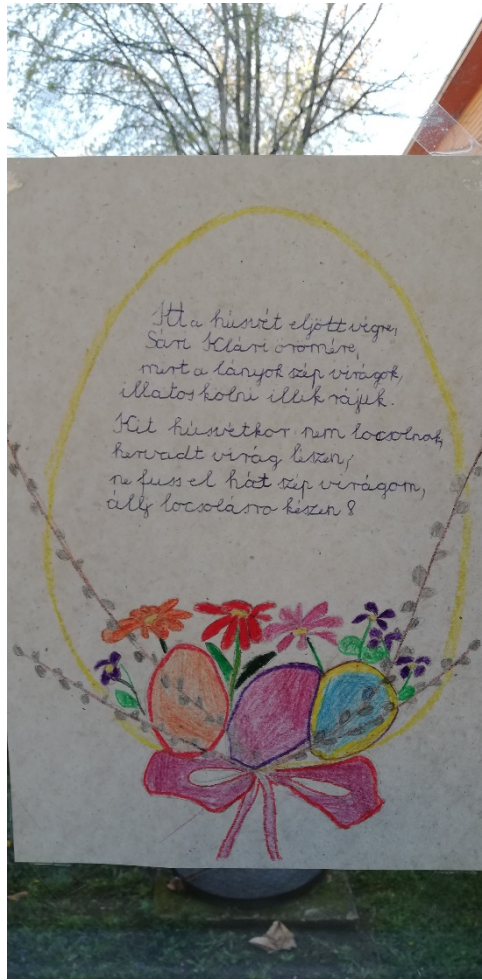 Itt a húsvét eljött végre,
Sári Klári örömére,
mert a lányok szép virágok,
illatos kölni illik rájuk.
Kit húsvétkor nem locsolnak,
hervadt virág leszen,
ne fuss el hát szép virágom,
állj locsolásra készen?